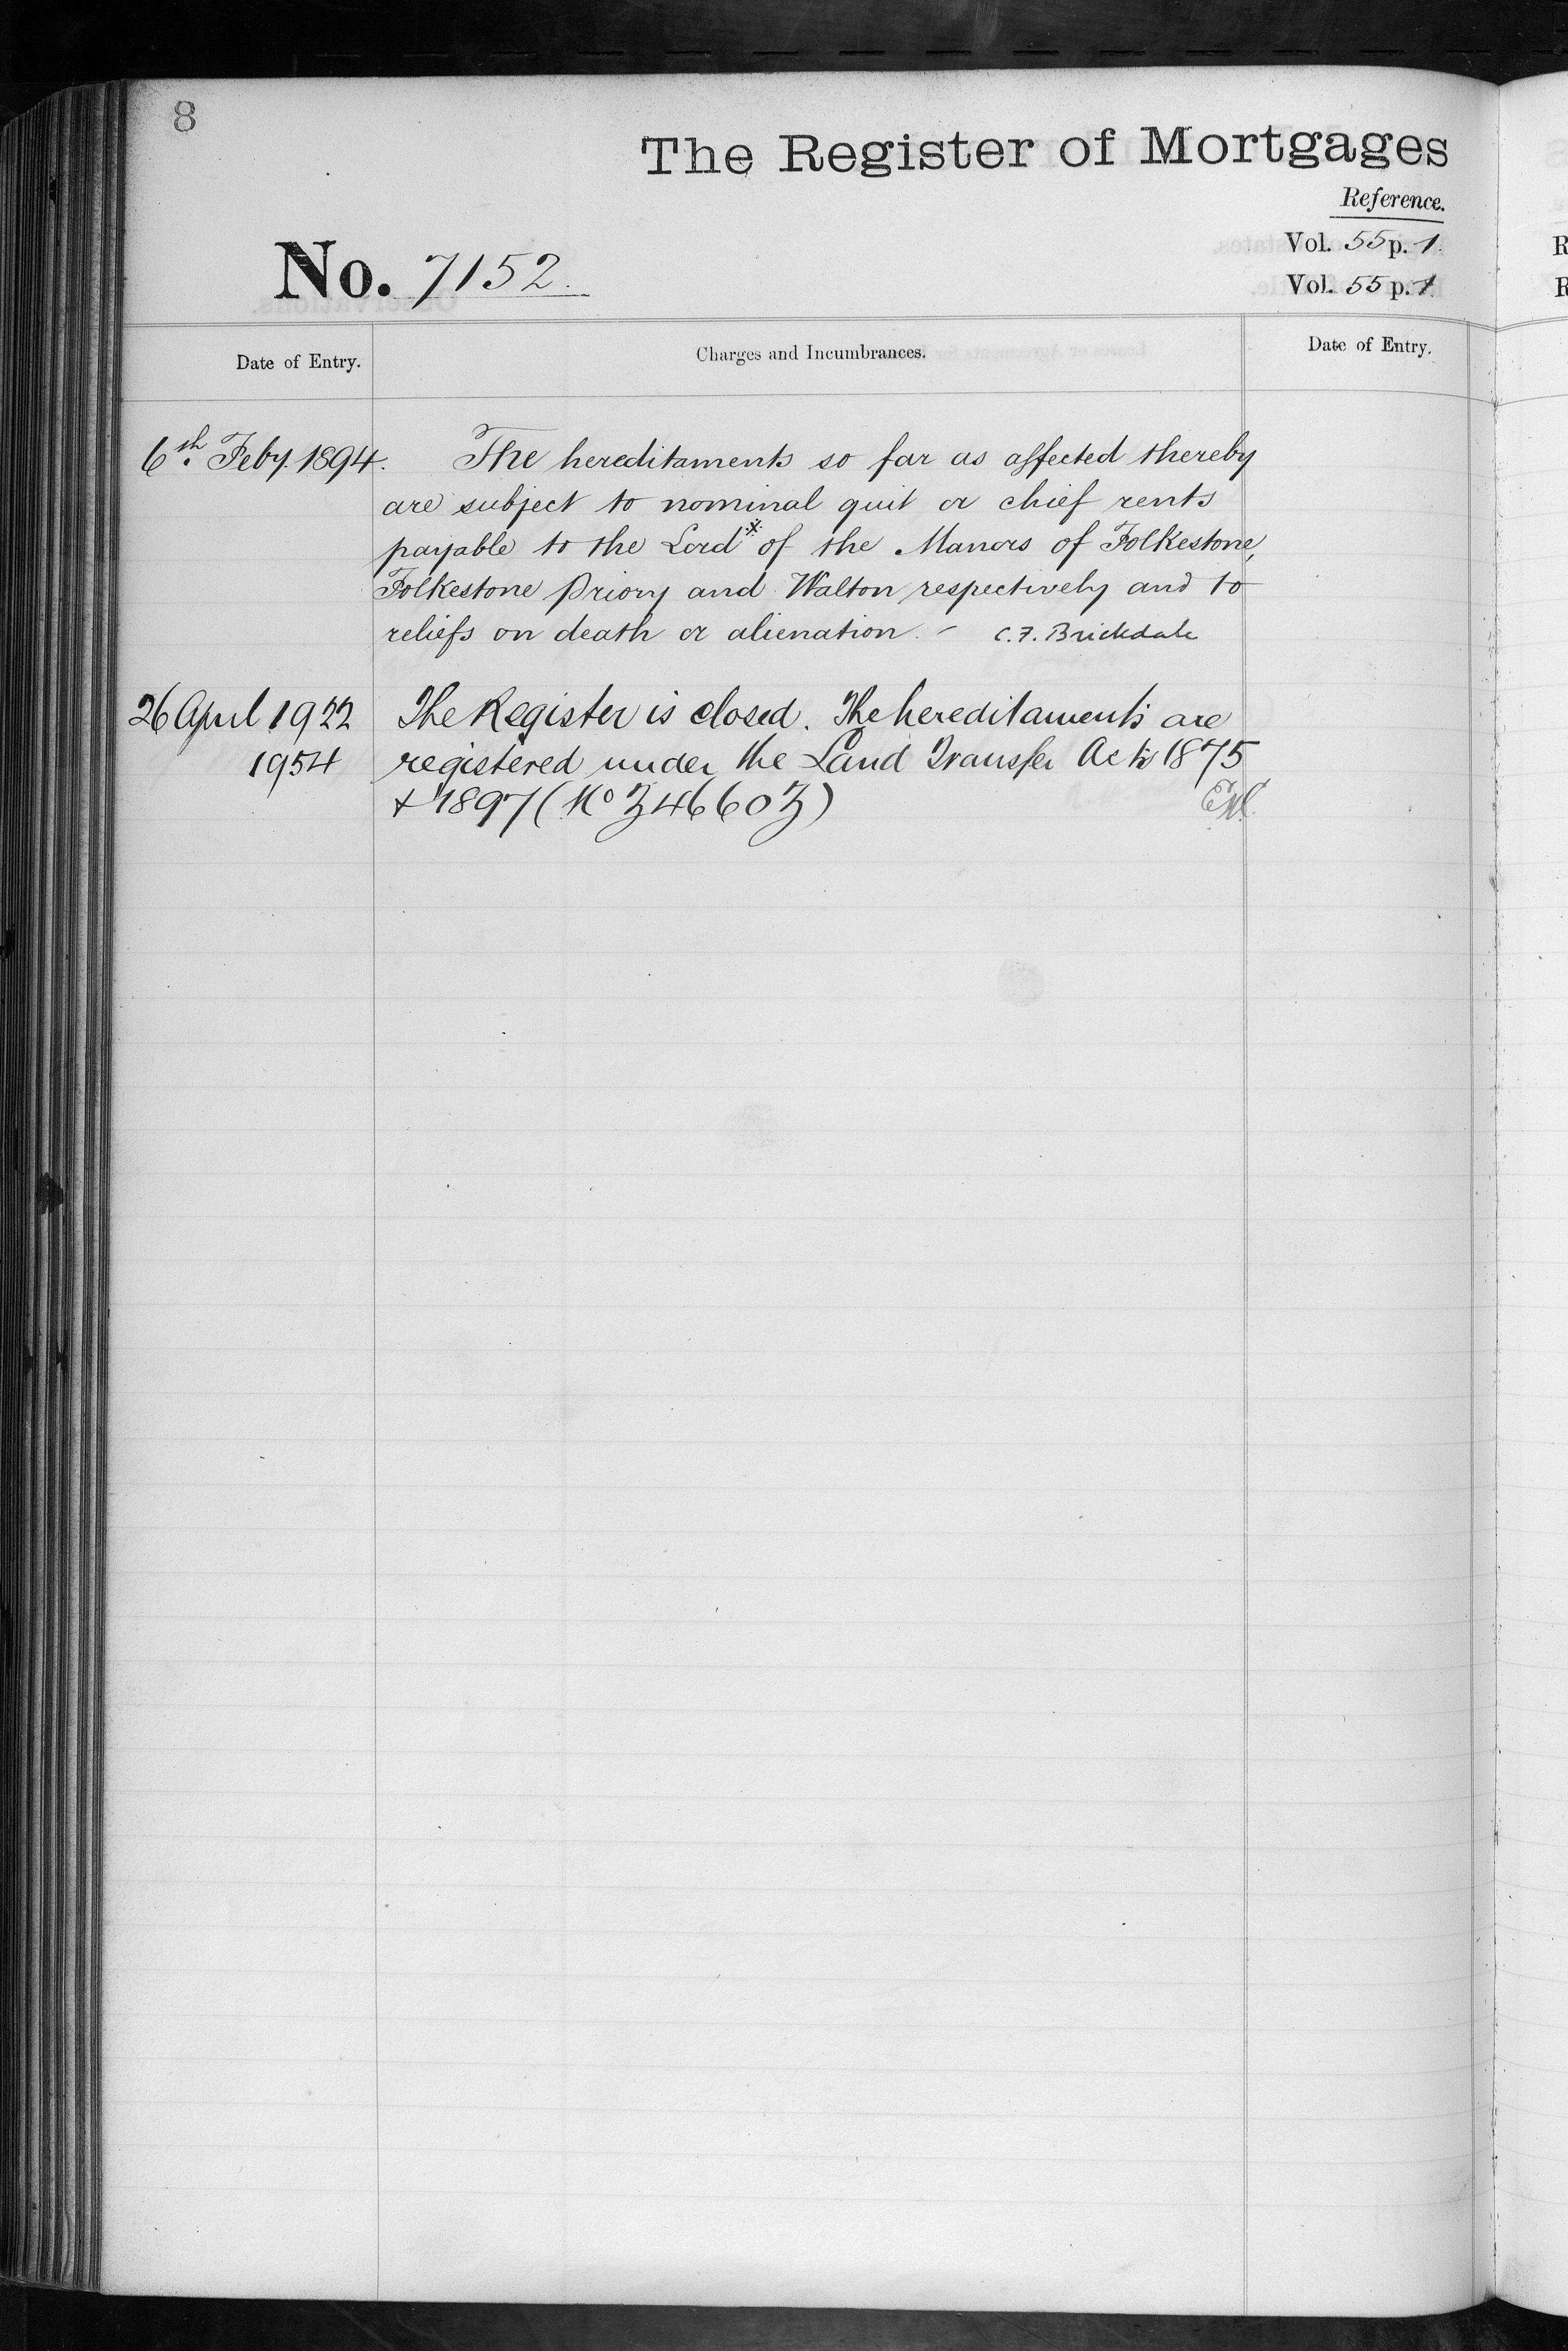 8
The Register of Mortgages
Reference.
No. 7152.
Vol. 55 p. 1.
Vol. 55 p. 1.
Date of Entry.
Charges and Incumbrances.
Date of Entry.
6th Feby. 1894. The hereditaments so far as affected thereby
are subject to nominal quit or chief rents
payable to the Lord of the Manors of Folkestone,
Folkestone Priory and Walton respectively and to
reliefs on death or alienation. - C. F. Brickdale
26 April 1922 The Register is closed. The hereditaments are
1954 registered under the Land Transfer Acts 1875
+ 1897 (No Z4660Z)